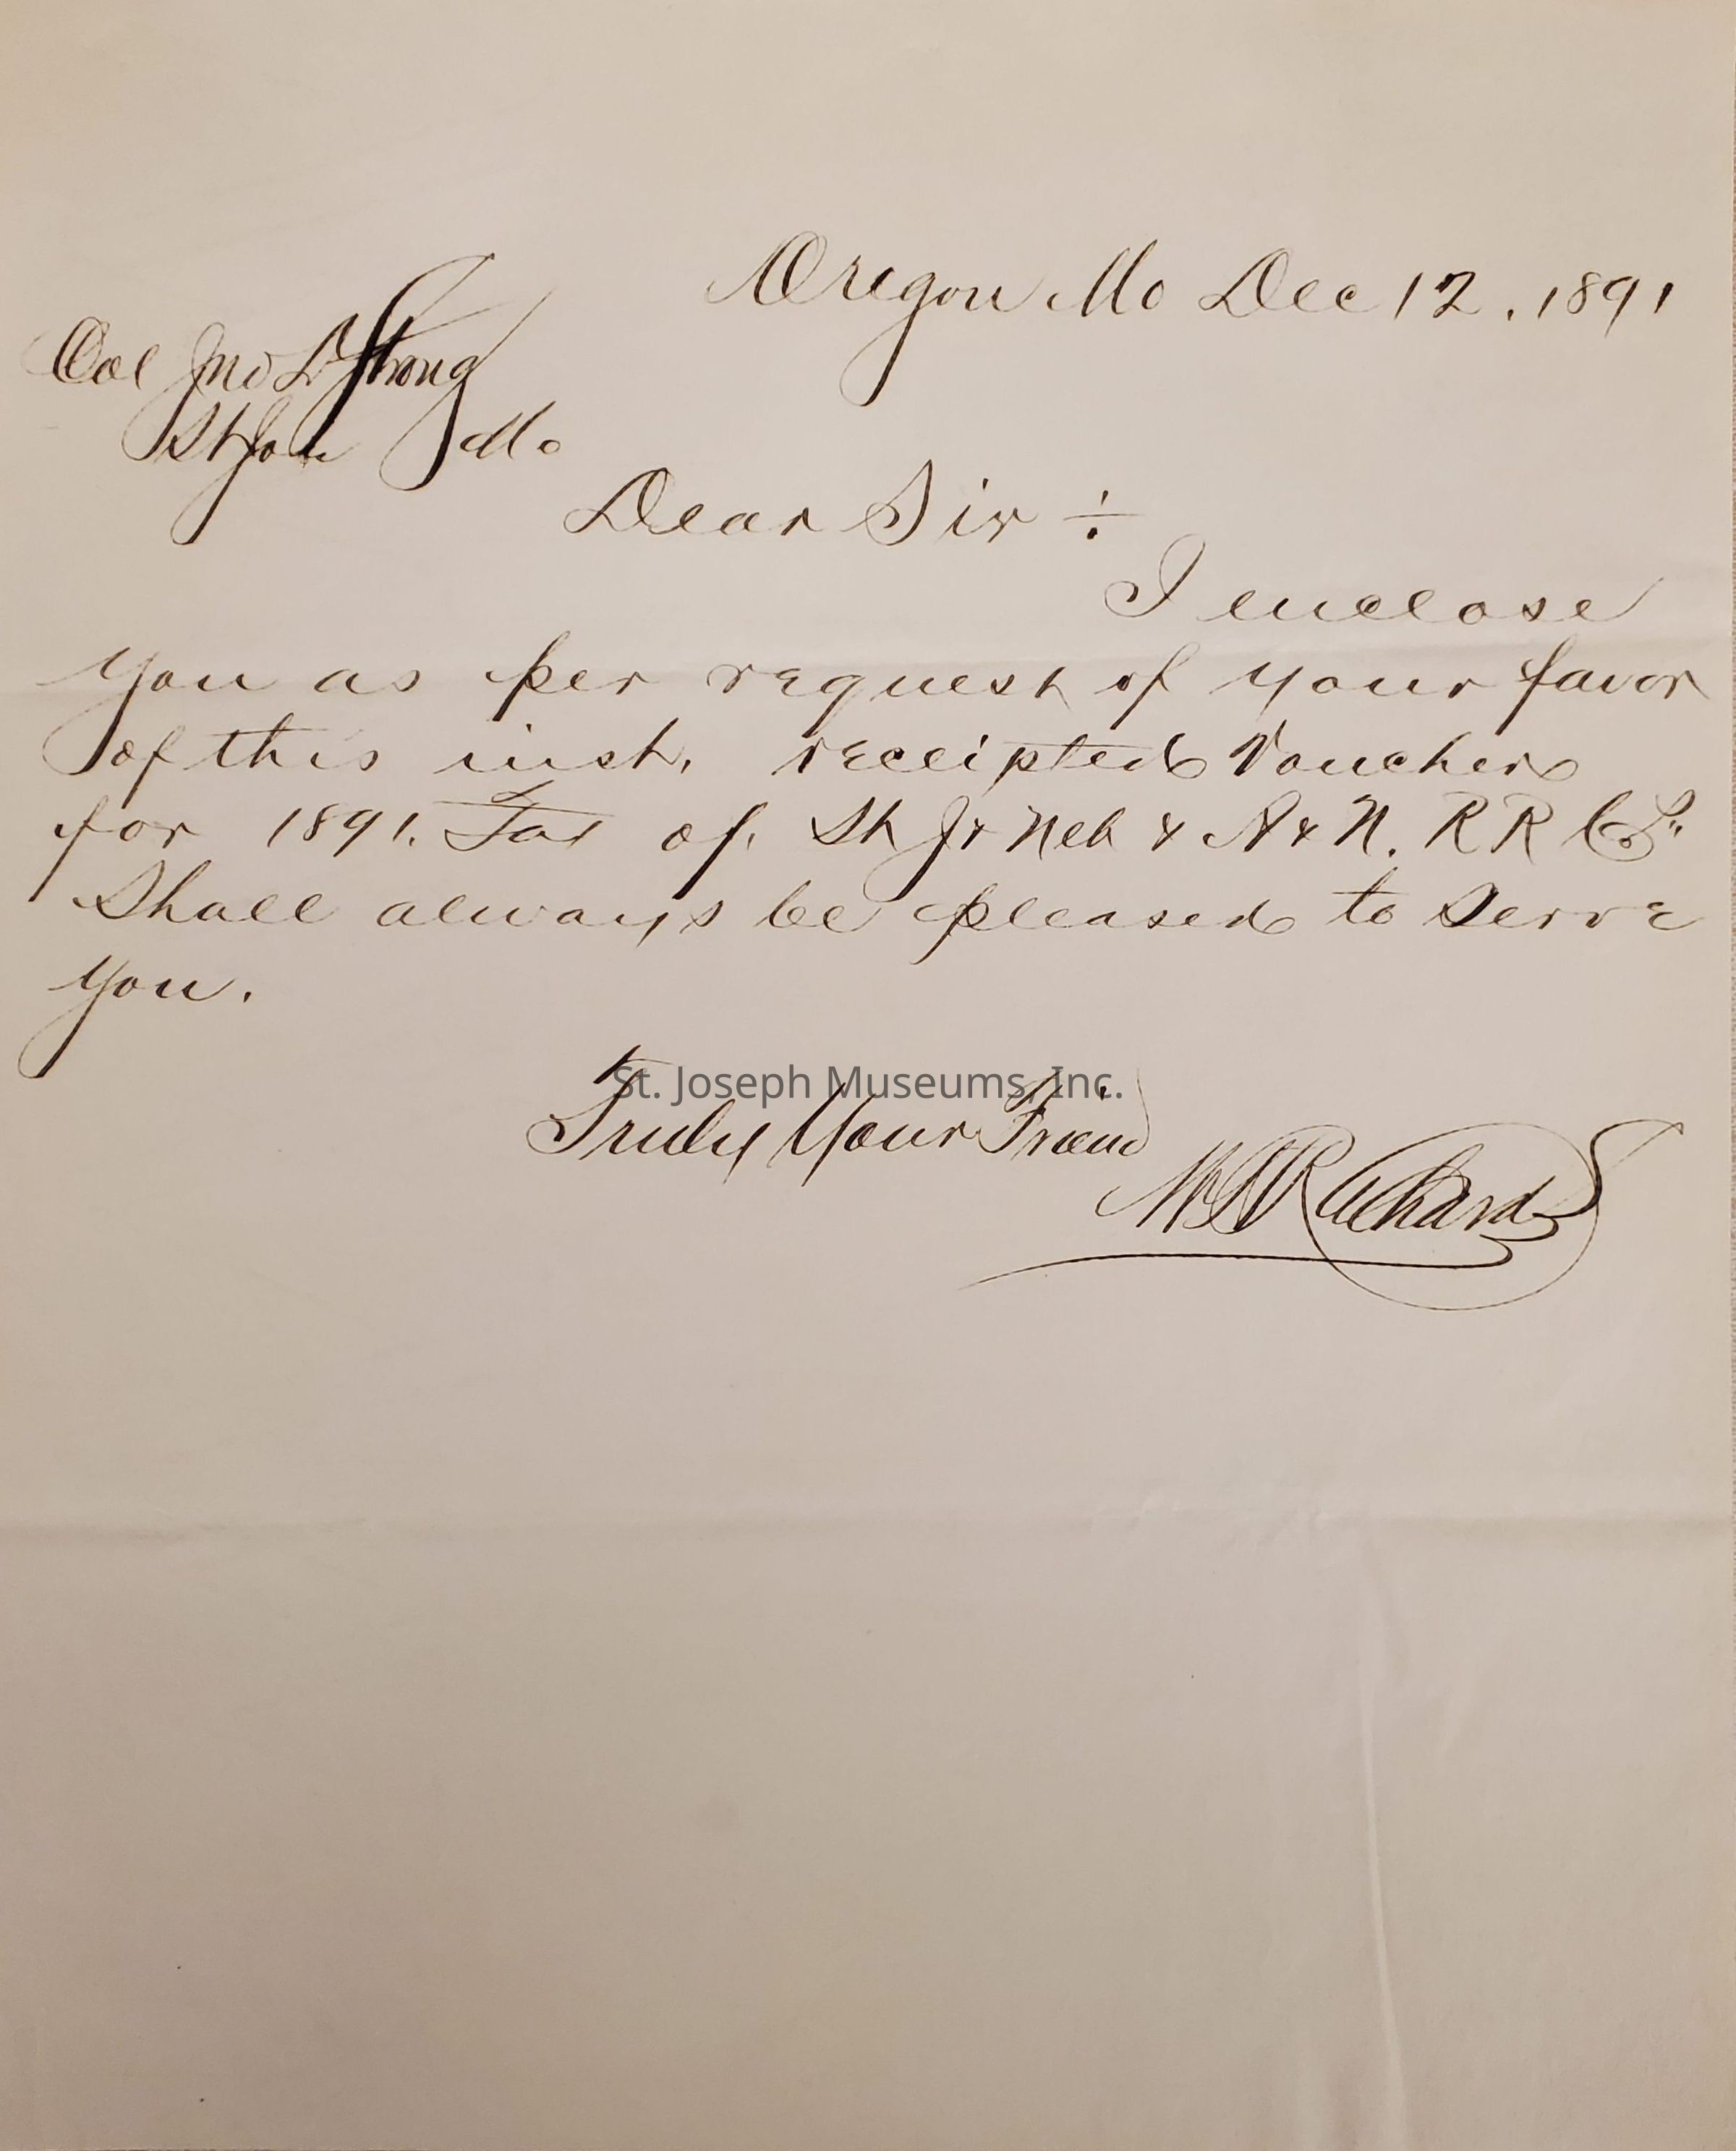 Oregon Mo Dec 12, 1891
Col Jno D Strong
St Joe Mo
Dear Sir ÷
I enclose
you as per request of your favor
of this inst, receipted Vouchers
for 1891. Tax of, St Jo & Neb & A & N. R R Co's.
Shall always be pleased to serve
you.
St. Joseph Museums, Inc.
Truly Your Friend
Richards